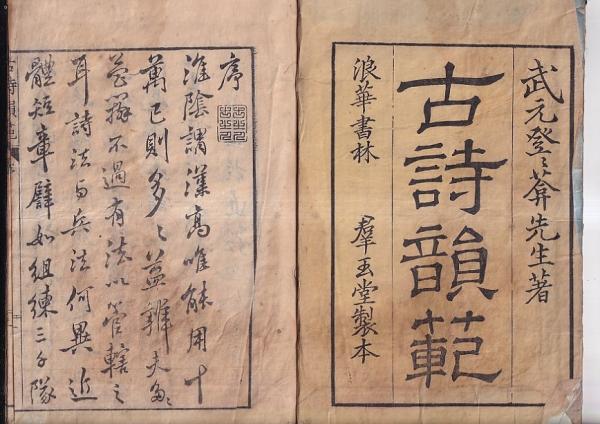 武元登〻葊先生著
古詩韻範
浪華書林 羣玉堂製本
序
淮陰謂漢高唯能用十
萬已則多〻益辨夫多〻
益辨不過有法以管轄之
耳詩法与兵法何異近
體短章譬如組練三千隊